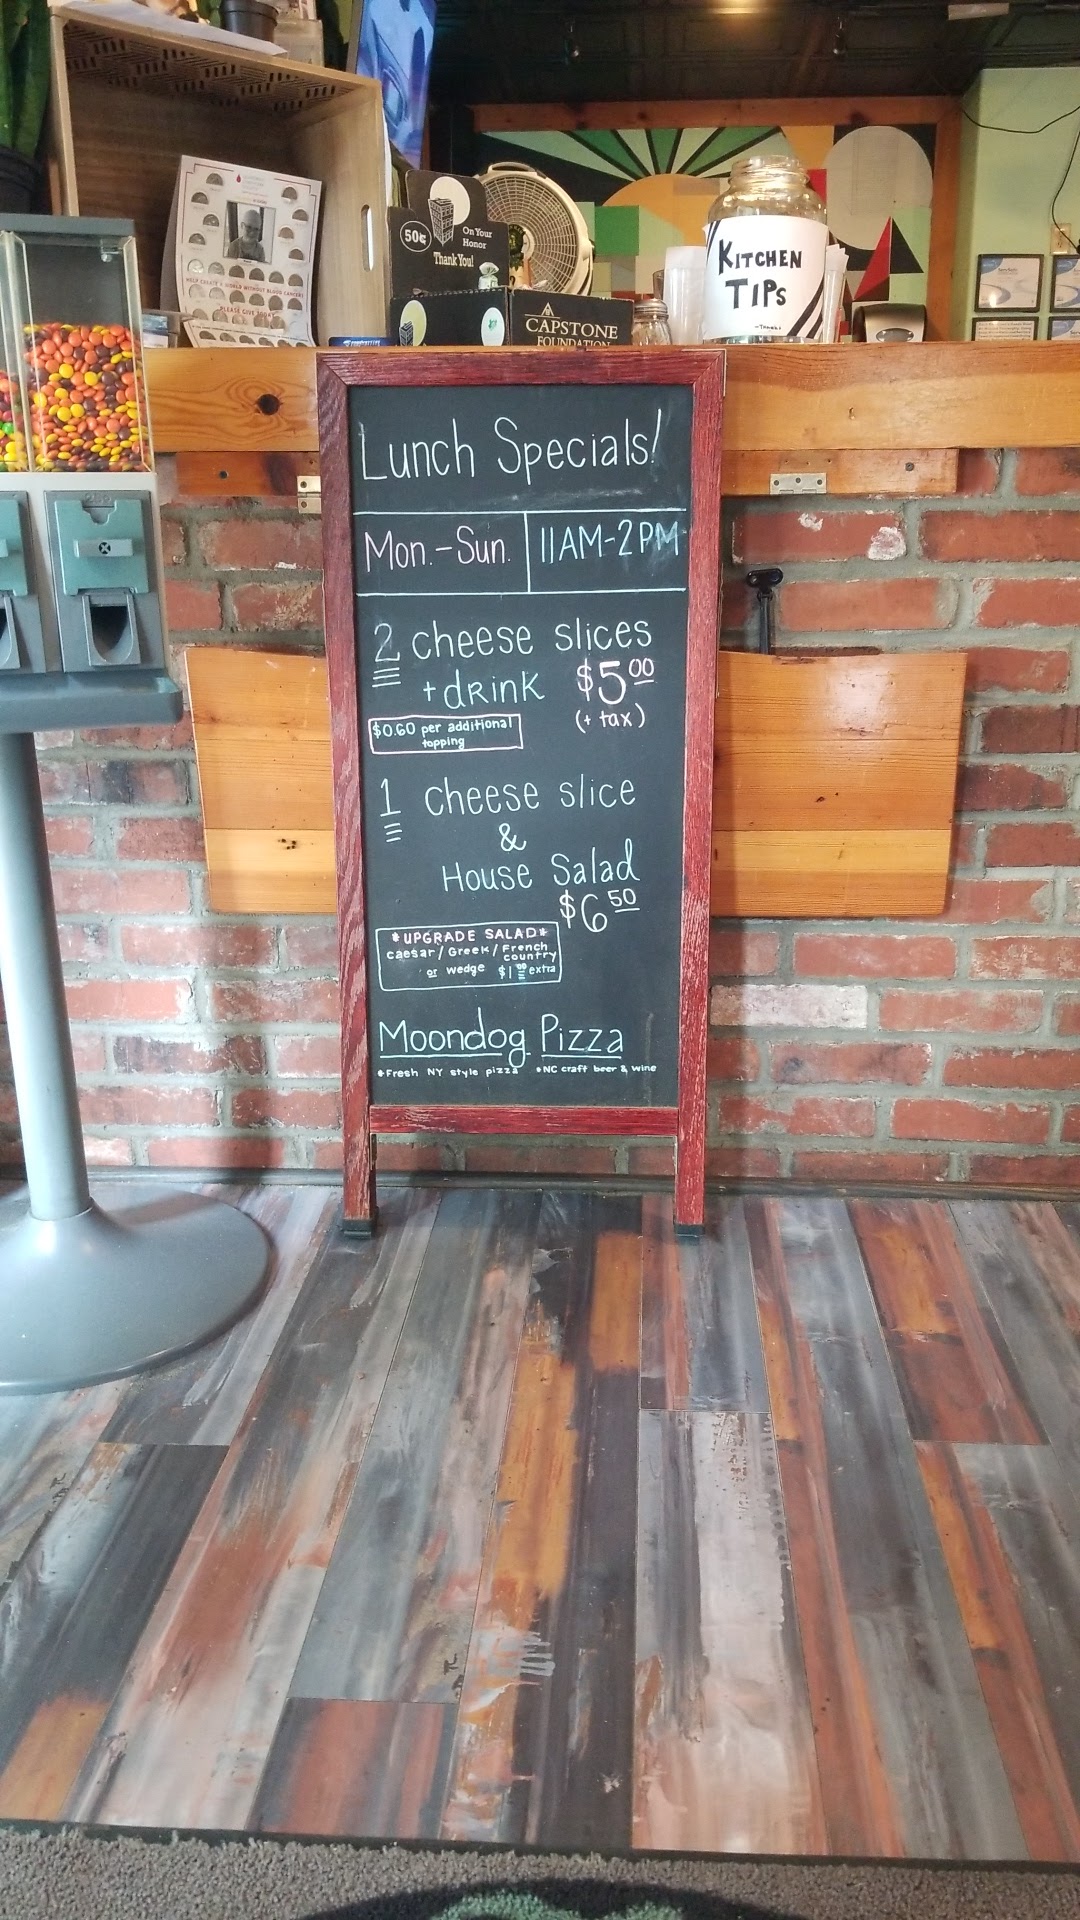 50¢
On Your
Honor
Thank You!
CAPSTONE
FOUNDATION
KITCHEN
TIPS
HELP CREATE A WORLD WITHOUT BLOOD CANCERS
PLEASE GIVE TODAY
Lunch Specials!
Mon.-Sun. 11AM-2PM
2 cheese slices
+ drink $5.00
(+ tax)
$0.60 per additional
topping
1 cheese slice
&
House Salad
$6.50
*UPGRADE SALAD*
caesar/Greek/French
country
or wedge $1.00 extra
Moondog Pizza
*Fresh NY style pizza *NC craft beer & wine